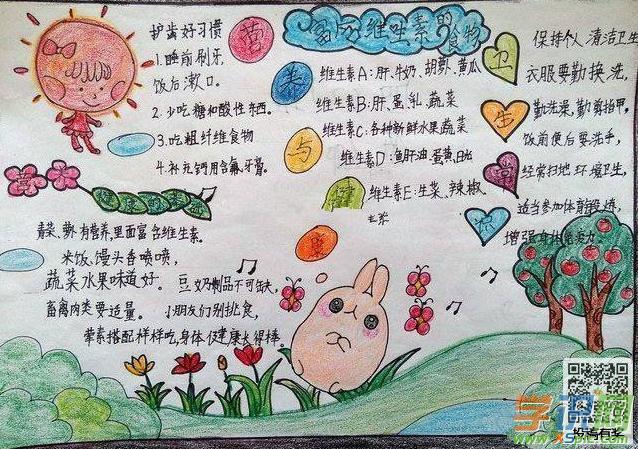 护齿好习惯
1.睡前刷牙
饭后漱口。
2.少吃糖和酸性东西。
3.吃粗纤维食物
4.补充钙用含氟牙膏。
营
养
与
健
康
富含维生素的
食物
维生素A:肝、牛奶、胡萝、黄瓜
维生素B:肝、蛋、乳、蔬菜
维生素C:各种新鲜水果、蔬菜
维生素D:鱼肝油、蛋黄、日光
维生素E:生菜、辣椒、
玉米
卫
生
常
识
保持个人清洁卫生
衣服要勤换洗,
勤洗澡,勤剪指甲,
饭前便后要洗手,
经常扫地 环境卫生,
适当参加体育锻炼,
增强身体免疫力。
青菜、萝卜有营养,里面富含维生素。
米饭、馒头香喷喷,
蔬菜水果味道好。豆奶制品不可缺,
畜禽肉类要适量。小朋友们别挑食,
荤素搭配样样吃,身体健康长得棒。
学识网
www.x5pic.com
投稿有奖